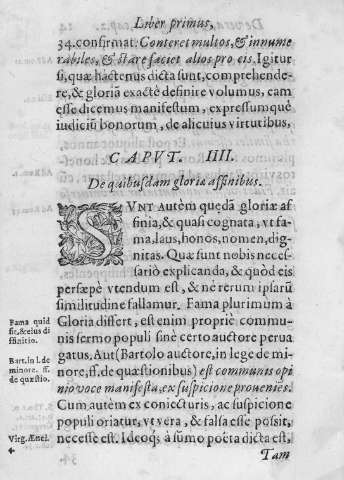 Liber primus,
34. confirmat. Conteret multos, & innume
rabiles, & stare faciet alios pro eis. Igitur
si, quæ hactenus dicta sunt, comprehende-
re, & gloriã exactè definire volumus, eam
esse dicemus manifestum, expressumquè
iudiciũ bonorum, de alicuius virtutibus,
CAPVT. IIII.
De quibusdam gloriæ affinibus.
SVNT autèm quædã gloriæ af
finia, & quasi cognata, vt fa-
ma, laus, honos, nomen, dig-
nitas. Quæ sunt nobis neces-
sariò explicanda, & quòd eis
persæpè vtendum est, & nè rerum ipsarũ
similitudine fallamur. Fama plurimùm à
Gloria differt, est enim propriè commu-
nis sermo populi sinè certo auctore perua
gatus. Aut (Bartolo auctore, in lege de mi-
nore, ff. de quæstionibus) est communis opi
nio voce manifesta, ex suspicione proueniẽs.
Cum autèm ex coniecturis, ac suspicione
populi oriatur, vt vera, & falsa esse possit,
necesse est. Ideoq; à summo poëta dicta est,
Tam
Fama quid
sit, & eius di
ffinitio.
Bart. in l. de
minore. ff.
de quæstio.
Virg. Ænei.
4